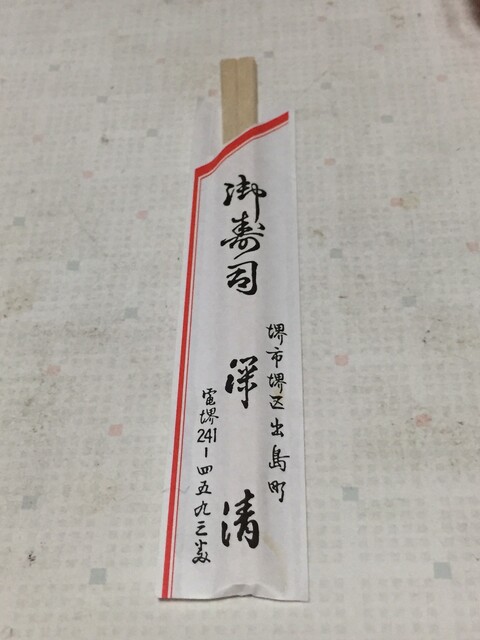 堺市堺区出島町
御寿司 深清
電堺241-四五九三番